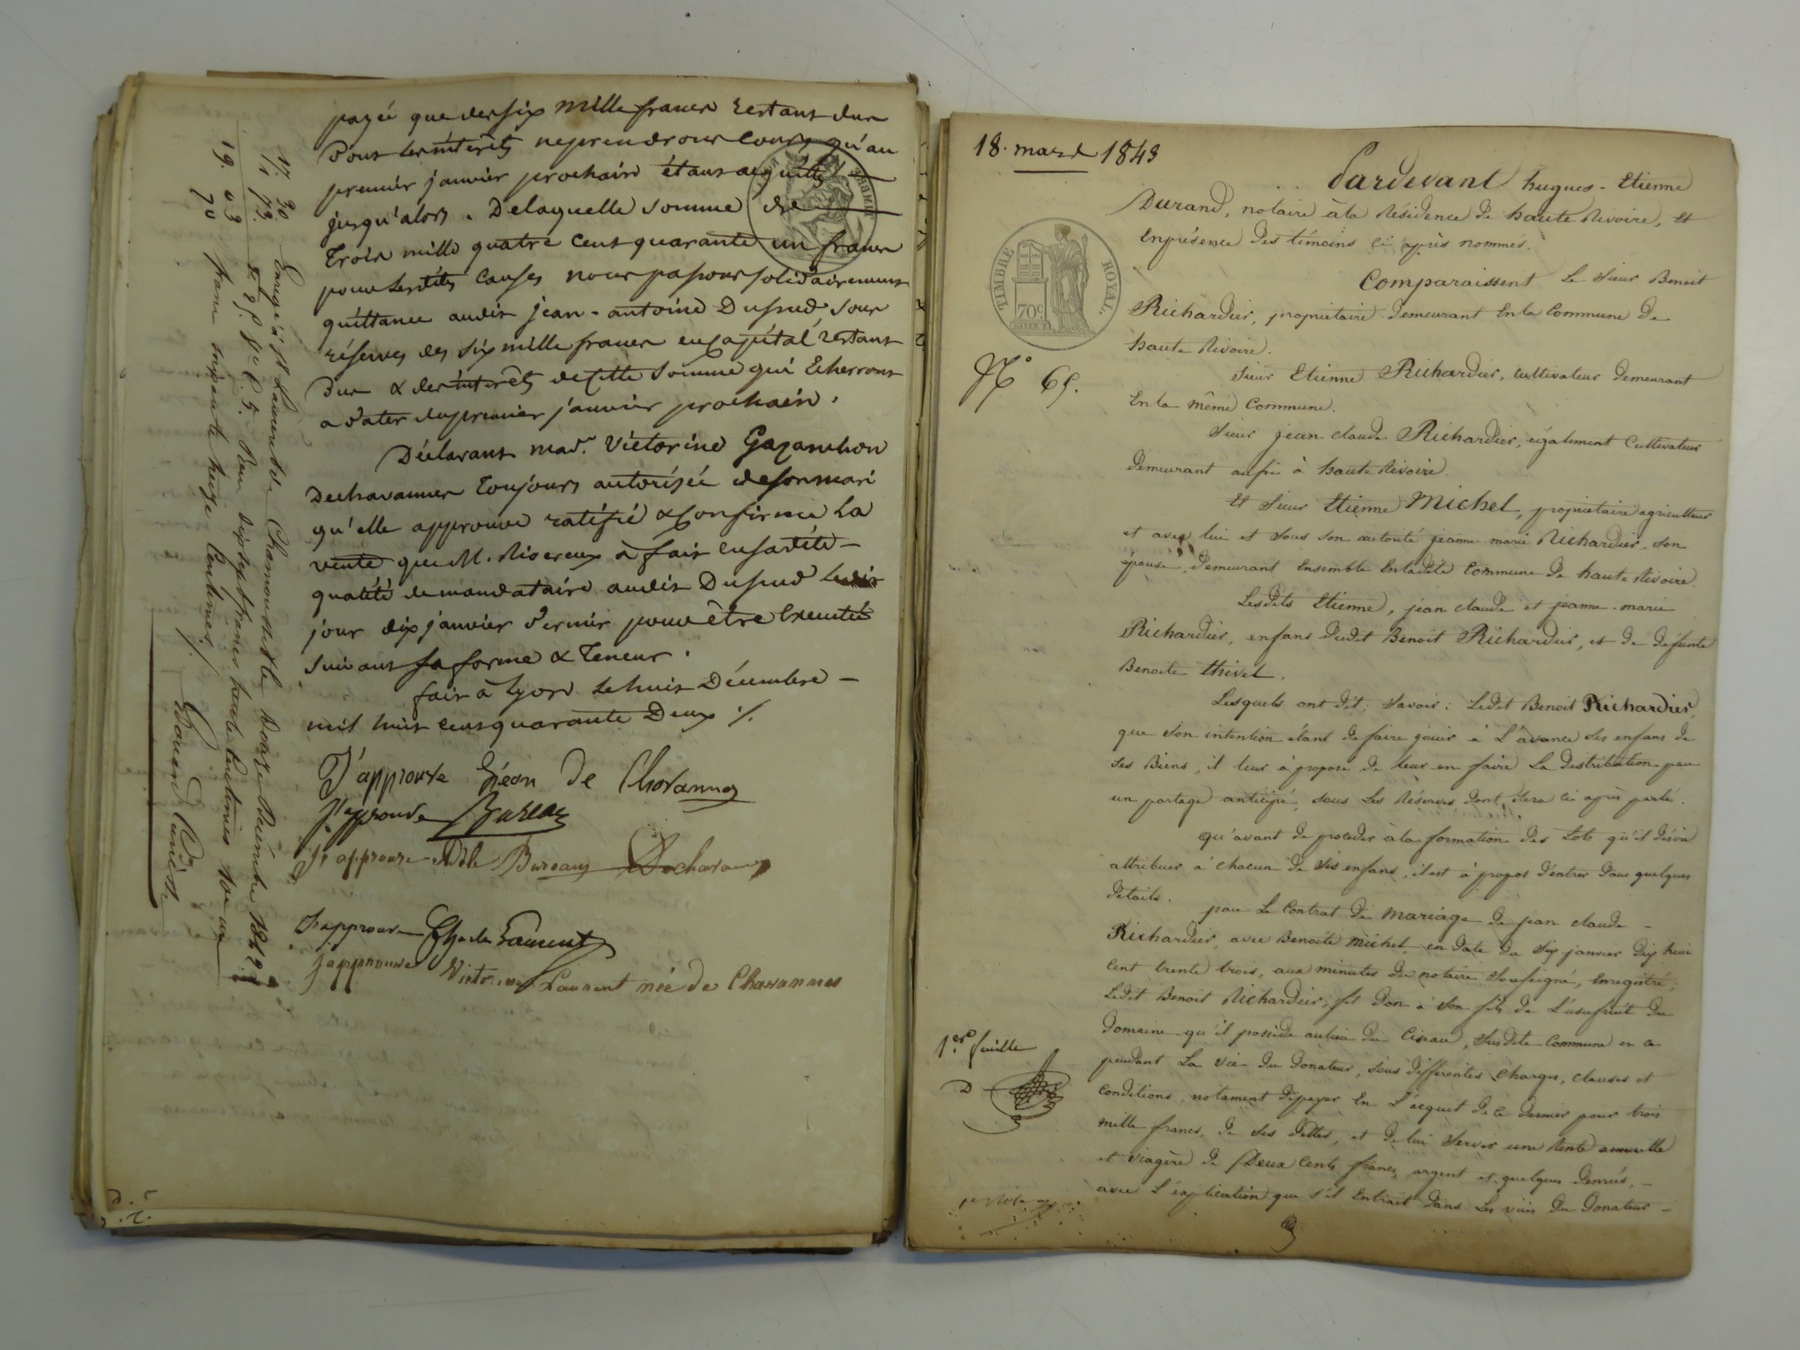 payé que des six mille francs restant dus
dont les intérêts ne prendront cours qu'au
premier janvier prochain étant acquittés
jusqu'alors. De laquelle somme de
Trois mille quatre cent quarante un francs
pour lesdites causes nous passons solidairement
quittance audit jean-antoine Dusud sous
réserves des six mille francs en capital restant
Dus & des intérêts de cette somme qui Echerront
a dater du premier janvier prochain.
Déclarant mad.e Victorine
Dechavannes toujours autorisée de son mari
qu'elle approuve ratifie & confirme la
vente que M. Rivereux à fait en sa dite
qualité de mandataire audit Dusud
jour dix janvier dernier pour être Exécutée
suivant sa forme & Teneur.
fait à Lyon le huit Décembre
mil huit cent quarante Deux ./.
J'approuve Léon De Chavannes
J'approuve Bureau
J'approuve Adèle Bureau Dechavannes
J'approuve Laurent
J'approuve Victorine Laurent née de Chavannes
Enreg.é à St Laurent de Chamousset le Décembre 1842
f° 85 r° C. 5. Reçu dix sept francs trente centimes
franc soixante treize Centimes.
17. 30
1. 73
19. 03
70
d. c.
18. mars 1843
Pardevant hugues-Etienne
Durand, notaire à la Résidence de haute Rivoire, et
En présence des témoins ci après nommés.
TIMBRE ROYAL
70c
Comparaissent le Sieur Benoit
Richardier, propriétaire demeurant En la Commune de
haute Rivoire.
N° 65.
Sieur Etienne Richardier, cultivateur demeurant
En la même Commune.
Sieur jean claude Richardier, également Cultivateur
demeurant aussi à haute Rivoire.
Et Sieur Etienne Michel, propriétaire agriculteur
et avec lui et sous son autorité jeanne-marie Richardier, son
épouse, demeurant Ensemble En ladite Commune de haute Rivoire.
Lesdits Etienne, jean claude et jeanne-marie
Richardier, enfans dudit Benoit Richardier, et de défunte
Benoite thivel.
Lesquels ont dit; Savoir: Ledit Benoit Richardier,
que Son intention étant de faire jouir à L'avance Ses enfans de
Ses Biens, il leur à proposé de leur en faire La distribution par
un partage anticipé, sous Les Réserves dont sera ci après parlé.
qu'avant de procéder à la formation des Lots qu'il désire
attribuer à chacun de Ses enfans, il est à propos d'entrer dans quelques
détails.
par Le Contrat de Mariage de jean claude
Richardier, avec Benoite Michel, en date du Six janvier dix huit
Cent trente trois, aux minutes du notaire Soussigné, Enregistré;
Ledit Benoit Richardier, fit don à Son fils de L'usufruit du
domaine qu'il possède au lieu du Ciseau, Susdite Commune et ce
pendant La vie du donateur, Sous différentes charges, clauses et
Conditions, notament de payer En L'acquit de ce dernier pour trois
mille francs, de Ses dettes, et de lui Servir une Rente annuelle
et viagère de Deux Cents francs argent et quelques denrées,
avec L'explication que s'il Entrait dans Les vues du donateur
1ere feuille
D